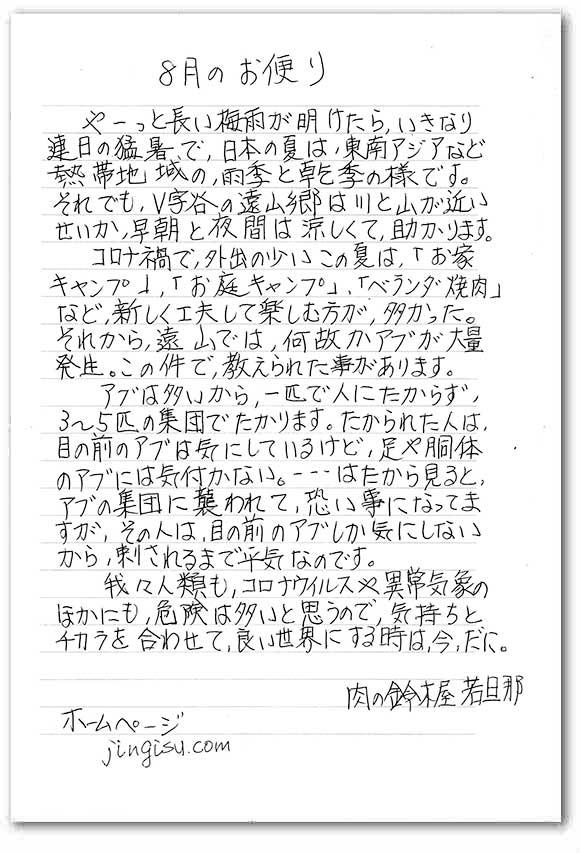 8月のお便り
やーっと長い梅雨が明けたら,いきなり
連日の猛暑で,日本の夏は,東南アジアなど
熱帯地域の,雨季と乾季の様です。
それでも,V字谷の遠山郷は川と山が近い
せいか,早朝と夜間は涼しくて,助かります。
コロナ禍で,外出の少いこの夏は,「お家
キャンプ」,「お庭キャンプ」,「ベランダ焼肉」
など,新しく工夫して楽しむ方が,多かった。
それから,遠山では,何故かアブが大量
発生。この件で,教えられた事があります。
アブは多いから,一匹で人にたからず,
3〜5匹の集団でたかります。たかられた人は,
目の前のアブは気にしているけど,足や胴体
のアブには気付かない。---はたから見ると,
アブの集団に襲われて,恐い事になってま
すが,その人は,目の前のアブしか気にしない
から,刺されるまで平気なのです。
我々人類も,コロナウイルスや異常気象の
ほかにも,危険は多いと思うので,気持ちと
チカラを合わせて,良い世界にする時は,今,だに。
肉の鈴木屋 若旦那
ホームページ
jingisu.com